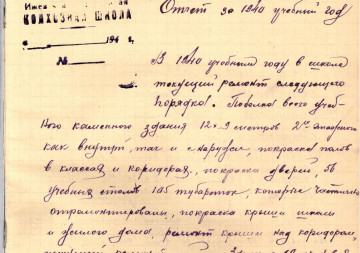 Ижев
КОЛХОЗНАЯ ШКОЛА
194 г.
№
Отчет за 1940 учебный год
В 1940 учебном году в школе
текущий ремонт следующего
порядка. Побелка всего учеб
ного каменного здания 12×9 метров 2ух этажного
как внутри так и снаружи, покраска полов
в классах и коридорах, покраска дверей, 56
учебных столов 105 табуреток, которые частично
отремонтировали, покраска крыши школы
и жилого дома, ремонт крыши над коридором,